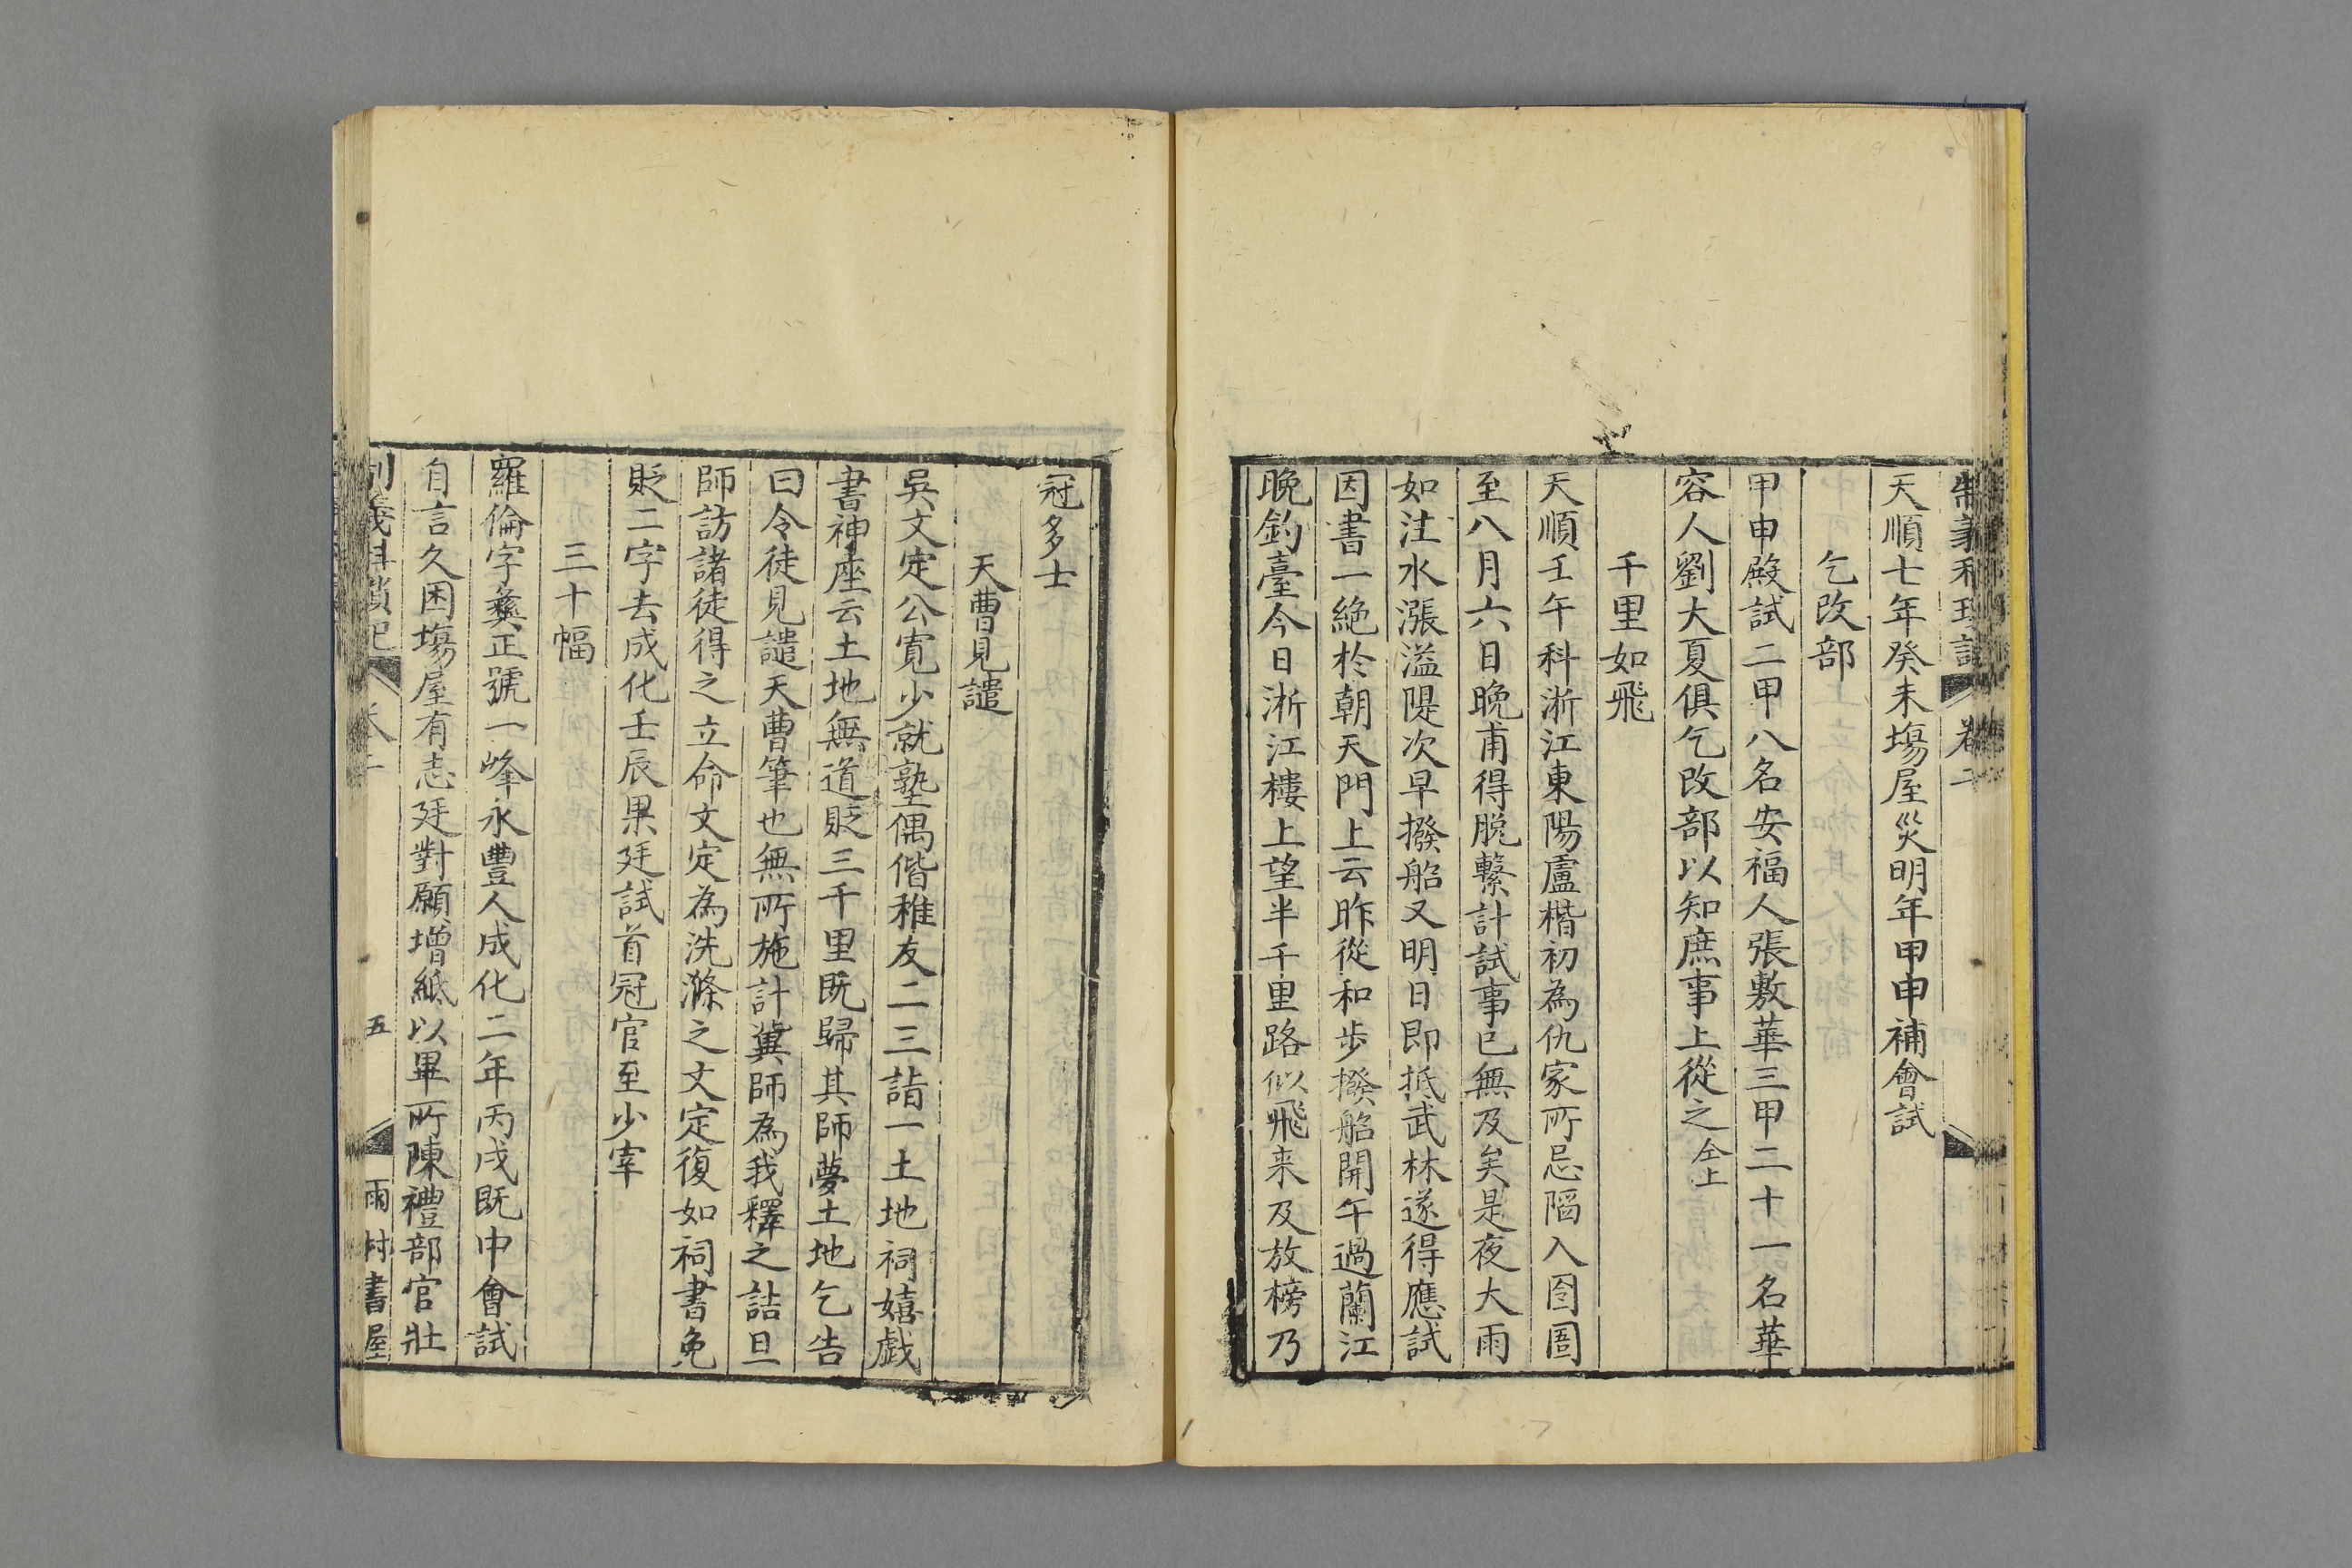 天順七年癸未塲屋災明年甲申補會試
乞改部
甲申殿試二甲八名安福人張敷華三甲二十一名華
容人劉大夏俱乞改部以知庶事上從之仝上
千里如飛
天順壬午科浙江東陽盧楷初為仇家所忌陷入囹圄
至八月六日晚甫得脫繫計試事已無及矣是夜大雨
如注水漲溢隄次早撥船又明日即抵武林遂得應試
因書一絶於朝天門上云昨從和步撥船開午過蘭江
晚釣臺今日浙江樓上望半千里路似飛来及放榜乃
冠多士
天曹見譴
吳文定公寬少就塾偶偕稚友二三詣一土地祠嬉戯
書神座云土地無道貶三千里既歸其師夢土地乞告
曰令徒見譴天曹筆也無所施計冀師為我釋之詰旦
師訪諸徒得之立命文定為洗滌之文定復如祠書免
貶二字去成化壬辰果廷試首冠官至少宰
三十幅
羅倫字彝正號一峰永豐人成化二年丙戌既中會試
自言久困塲屋有志廷對願增紙以畢所陳禮部官壯
制義科瑣記 卷二 五 雨村書屋